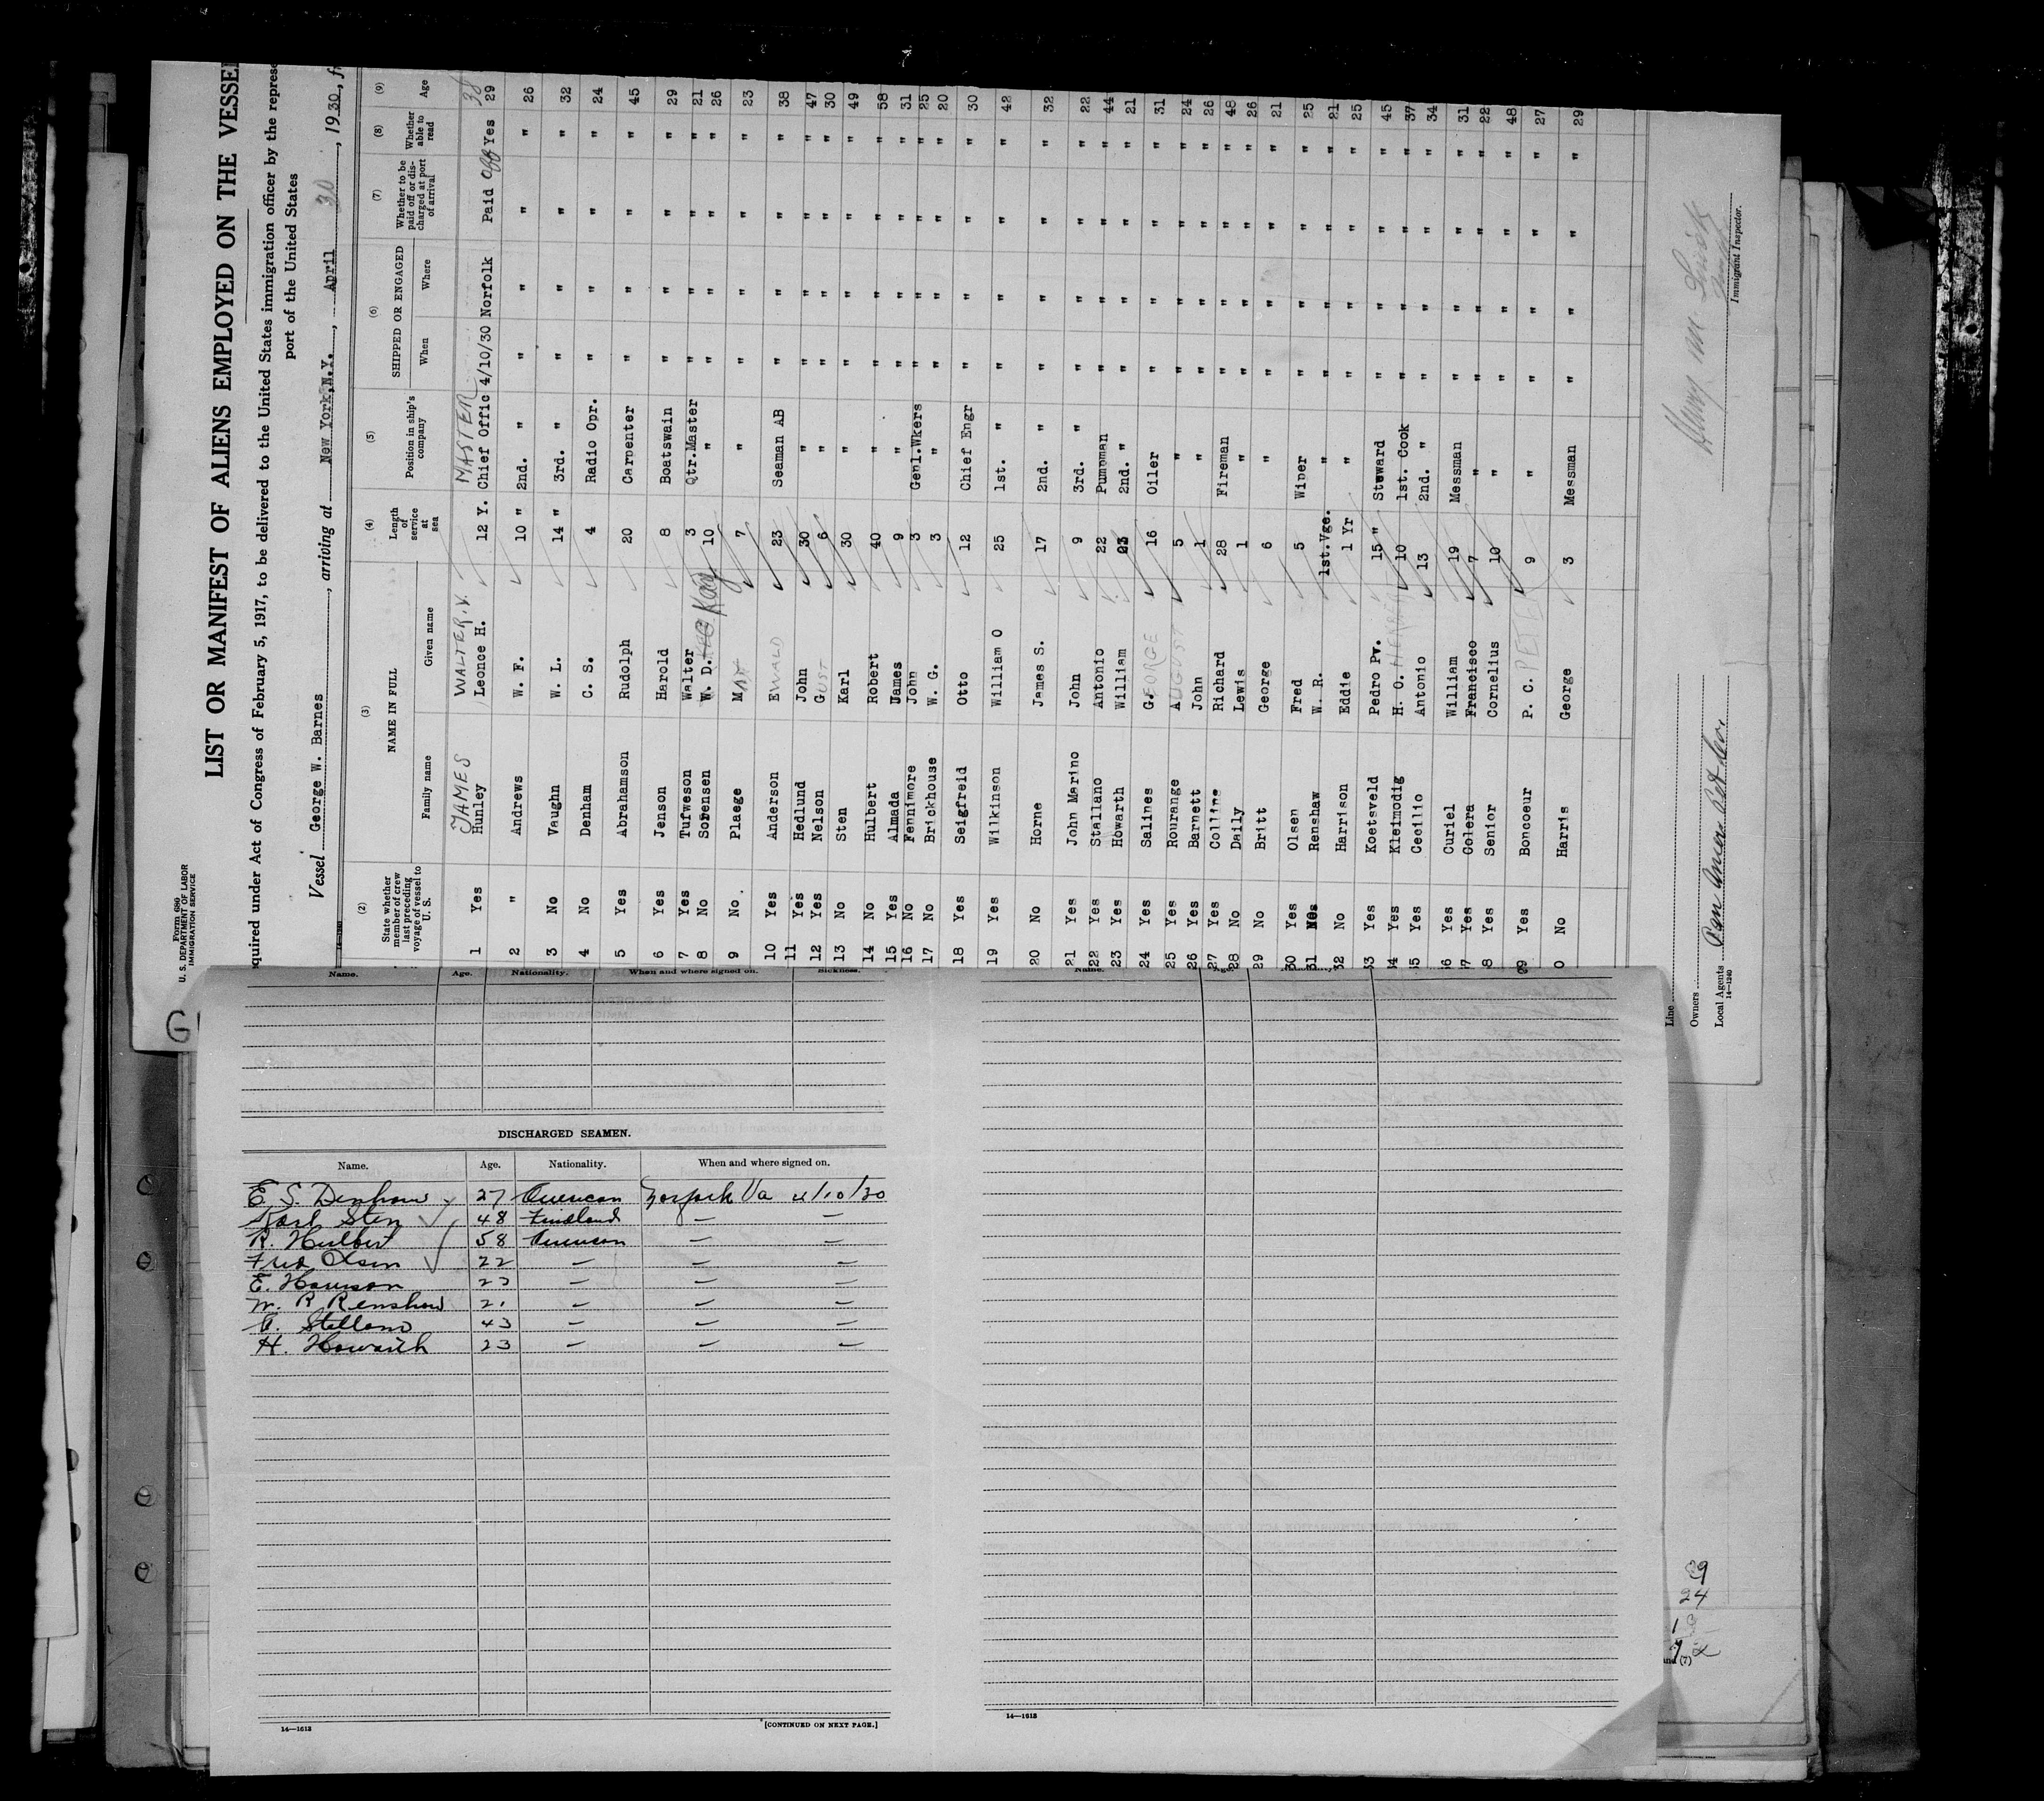 Form 680
U. S. DEPARTMENT OF LABOR
IMMIGRATION SERVICE
LIST OR MANIFEST OF ALIENS EMPLOYED ON THE VESSEL
quired under Act of Congress of February 5, 1917, to be delivered to the United States immigration officer by the represe
port of the United States
Vessel George W. Barnes, arriving at New York, N.Y., April 30, 1930, fr
(2) (3) (4) (5) (6) (7) (8) (9)
State whether member of crew last preceding voyage of vessel to U. S. NAME IN FULL Length of service at sea Position in ship's company SHIPPED OR ENGAGED Whether to be paid off or discharged at port of arrival Whether able to read Age
Family name Given name When Where
JAMES WALTER.V. MASTER 38
1 Yes Hunley Leonce H. 12 Y. Chief Offic 4/10/30 Norfolk Paid Off Yes 29
2 " Andrews W. F. 10 " 2nd. " " " " " 26
3 No Vaughn W. L. 14 " 3rd. " " " " " 32
4 No Denham C. S. 4 Radio Opr. " " " " 24
5 Yes Abrahamson Rudolph 20 Carpenter " " " " 45
6 Yes Jenson Harold 8 Boatswain " " " " 29
7 Yes Tufweson Walter 3 Qtr.Master " " " " 21
8 No Sorensen W. D. Kay 10 " " " " " 26
9 No. Plaege Max 7 " " " " " 23
10 Yes Anderson EWALD 23 Seaman AB " " " " 38
11 Yes Hedlund John 30 " " " " " 47
12 Yes Nelson GUST 6 " " " " " 30
13 No Sten Karl 30 " " " " " 49
14 No Hulbert Robert 40 " " " " " 58
15 Yes Almada James 9 " " " " " 31
16 No Fennimore John 3 Genl.Wkers " " " " 25
17 No Brickhouse W. G. 3 " " " " " 20
18 Yes Seigfreid Otto 12 Chief Engr " " " " 30
19 Yes Wilkinson William O 25 1st. " " " " " 42
20 No Horne James S. 17 2nd. " " " " " 32
21 Yes John Marino John 9 3rd. " " " " " 22
22 Yes Stallano Antonio 22 Pumpman " " " " 44
23 Yes Howarth William 23 2nd. " " " " " 21
24 Yes Salines GEORGE 16 Oiler " " " " 31
25 Yes Rourange AUGUST 5 " " " " " 24
26 Yes Barnett John 1 " " " " " 26
27 Yes Collins Richard 28 Fireman " " " " 48
28 No Daily Lewis 1 " " " " " 26
29 No Britt George 6 " " " " " 21
30 Yes Olsen Fred 5 Wiper " " " " 25
31 Renshaw W. R. 1st.Vge. " " " " " 21
32 No Harrison Eddie 1 Yr " " " " " 25
33 Yes Koetsveld Pedro Pv. 15 " Steward " " " " 45
34 Yes Kleimodig H. O. 10 1st. Cook " " " " 37
35 Yes Cecilio Antonio 13 2nd. " " " " " 34
36 Yes Curiel William 19 Messman " " " " 31
37 Yes Golera Francisco 7 " " " " " 22
8 Yes Senior Cornelius 10 " " " " " 48
29 Yes Boncoeur P. C. PETER 9 " " " " " 27
0 No Harris George 3 Messman " " " " 29
Line
Owners
Local Agents Pan Amer. Pet. Co.
14—1240
Immigrant Inspector.
Name. Age. Nationality. When and where signed on. Sickness.
DISCHARGED SEAMEN.
Name. Age. Nationality. When and where signed on.
E. S. Denham 27 American Norfolk Va 4/10/30
Karl Sten 48 Findland — —
R. Hulbert 58 American — —
Fred Olsen 22 — — —
E. Harrison 23 — — —
W. R Renshaw 2. — — —
A. Stellano 43 — — —
H. Howarth 23 — — —
14—1613
[CONTINUED ON NEXT PAGE.]
14—1613
29
24